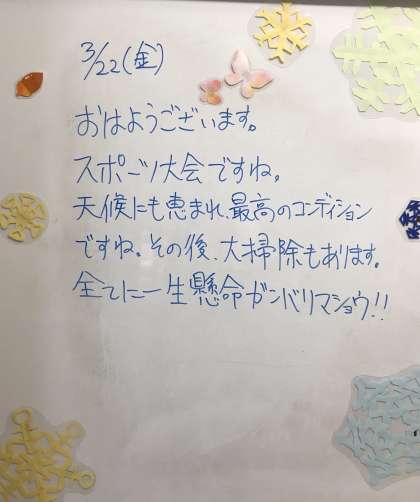 3/22(金)
おはようございます。
スポーツ大会ですね。
天候にも恵まれ、最高のコンディション
ですね。その後、大掃除もあります。
全てに一生懸命ガンバリマショウ!!